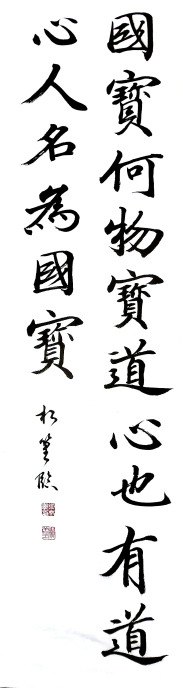 國寶何物寶道心也有道
心人名為國寶